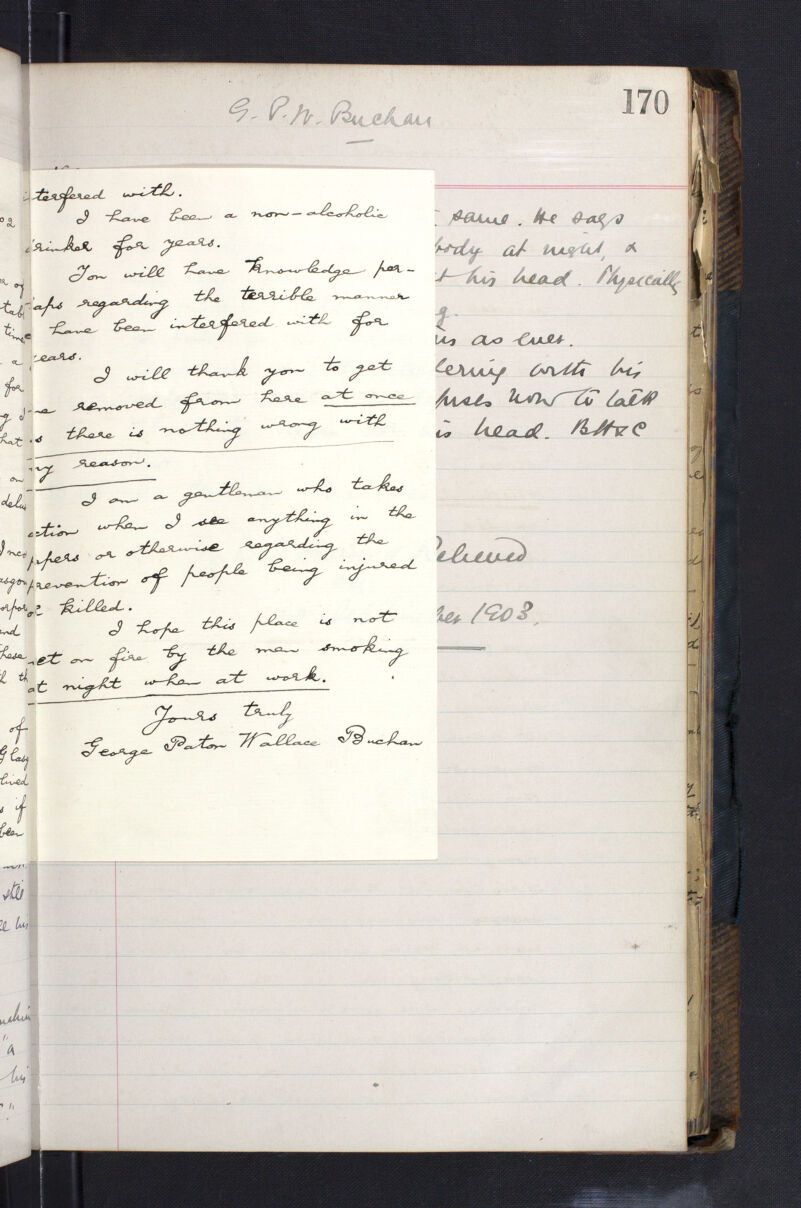 170
G. P. W. Buchan
terfered with.
I have been a non-alcoholic
drinker for years.
You will have knowledge per-
aps regarding the terrible manner
have been interfered with for
years.
I will thank you to get
me removed from here at once
as there is nothing wrong with
my reason.
I am a gentleman who takes
action when I see anything in the
papers or otherwise regarding the
prevention of people being injured
or killed.
I hope this place is not
set on fire by the men smoking
at night when at work.
Yours truly
George Paton Wallace Buchan
same. He says
body at night, &
his head. Physically
as ever.
with his
now to talk
is head.
Relieved
ber 1903.